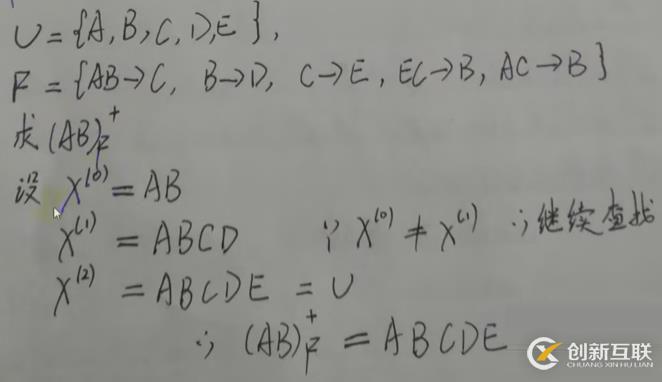 U={A,B,C,D,E},
F={AB→C, B→D, C→E, EC→B, AC→B}
求(AB)F⁺
设 X⁽⁰⁾=AB
X⁽¹⁾=ABCD ∵X⁽⁰⁾≠X⁽¹⁾ ∴继续查找
X⁽²⁾=ABCDE=U
∴(AB)F⁺=ABCDE
创新互联
CHUANG XIN HU LIAN